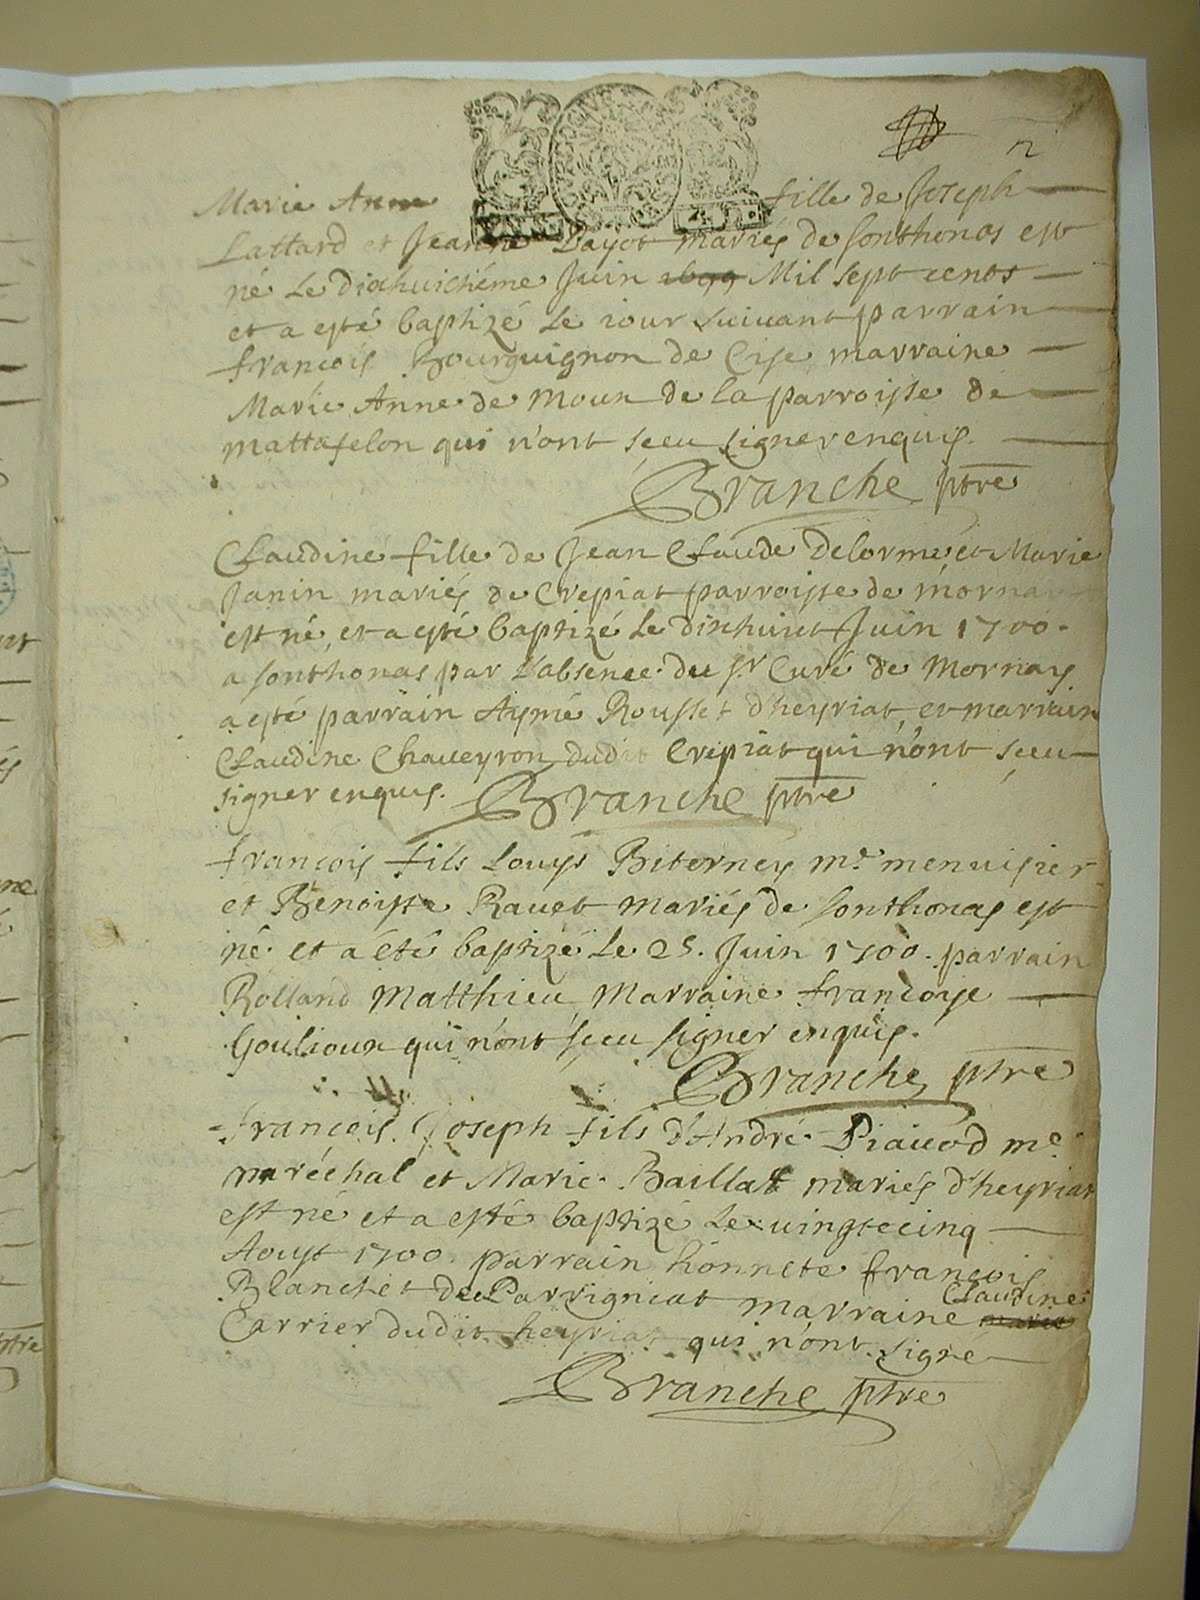 n
Marie Anne fille de Joseph
Lattard et Jeanne Payot mariés de sonthonas est
né Le dixhuictiéme Juin 1699 Mil sept cents
et a esté baptizé Le iour suiuant parrain
francois Bourguignon de Cise marraine
Marie Anne de Moux de la parroisse de
mattafelon qui n'ont sceu signer enquis.
Branche ptre
Claudine fille de Jean Claude Delorme et Marie
Janin mariés de Crepiat parroisse de mornay
est né, et a esté baptizé Le dixhuict Juin 1700.
a sonthonas par L'absence du Sr Curé de Mornay
a esté parrain Aymé Rousset d'heyriat, et marrain
Claudine Chaveyron dudit Crepiat qui n'ont sceu
signer enquis. Branche ptre
francois fils Louys Biterney me menuisier
et Benoiste Rauet mariés de sonthonas est
né et a été baptizé Le 25. Juin 1700. parrain
Rolland Matthieu Marraine francoise
Goulioux qui n'ont sceu signer enquis.
Branche ptre
francois Joseph fils d'André Piauod me
maréchal et Marie Baillat mariés d'heyriat
est né et a esté baptizé Le uingtcinq
Aoust 1700. parrain honnete francois
Blanchet de Parrigniat marraine Claudine
Carrier dudit heyriat qui n'ont signe
Branche ptre